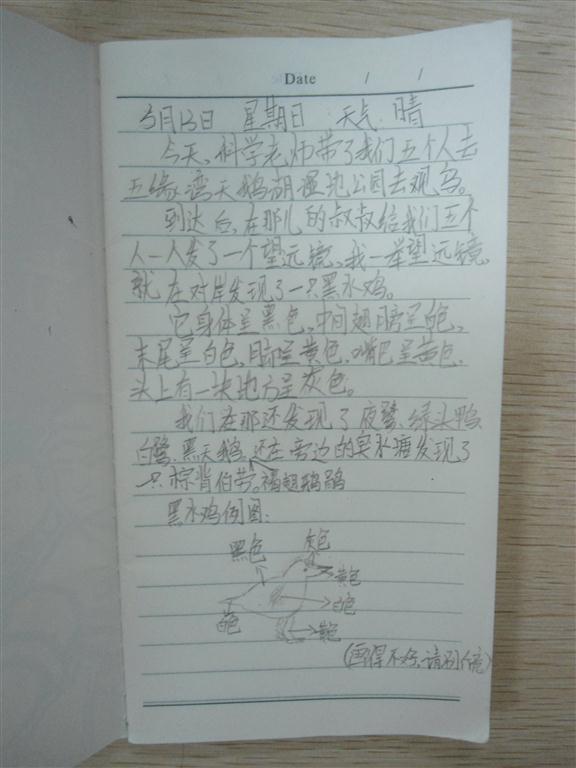 Date / /
3月13日 星期日 天气:晴
今天,科学老师带了我们五个人去
五缘湾天鹅湖湿地公园去观鸟。
到达后,在那儿的叔叔给我们五个
人一人发了一个望远镜。我一举望远镜,
就在对岸发现了一只黑水鸡。
它身体呈黑色,中间翅膀呈白色,
末尾呈白色,脚呈黄色,嘴巴呈黄色,
头上有一块地方呈灰色。
我们在那还发现了夜鹭、绿头鸭、
白鹭、黑天鹅,还在旁边的臭水塘发现了
一只棕背伯劳。褐翅鸦鹃
黑水鸡例图:
灰色
黑色
黄色
白色
白色
黄色
(画得不好,请别介意)